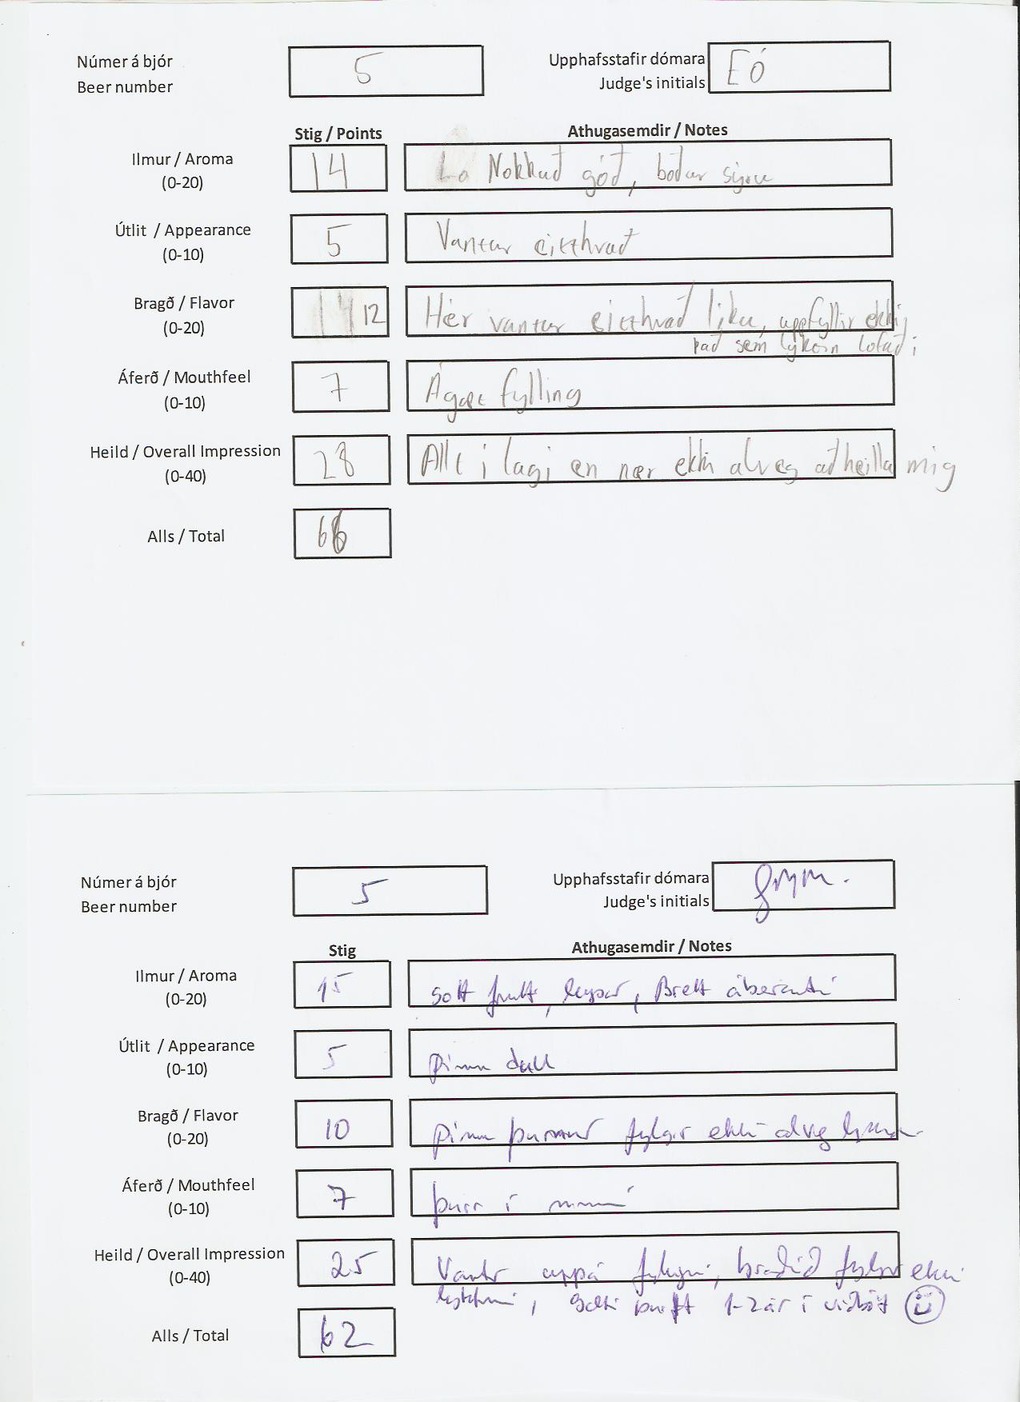 Númer á bjór
Beer number
5
Upphafsstafir dómara
Judge's initials
EÓ
Stig / Points
Athugasemdir / Notes
Ilmur / Aroma
(0-20)
14
Nokkuð góð, boðar
Útlit / Appearance
(0-10)
5
Vantar eitthvað
Bragð / Flavor
(0-20)
12
Hér vantar eitthvað líka, uppfyllir ekki
það sem lyktin lofaði
Áferð / Mouthfeel
(0-10)
7
Ágæt fylling
Heild / Overall Impression
(0-40)
28
Allt í lagi en nær ekki alveg að heilla mig
Alls / Total
66
Númer á bjór
Beer number
5
Upphafsstafir dómara
Judge's initials
Stig
Athugasemdir / Notes
Ilmur / Aroma
(0-20)
15
Brett áberandi
Útlit / Appearance
(0-10)
5
pínu dull
Bragð / Flavor
(0-20)
10
pínu þunnur fylgir ekki alveg
Áferð / Mouthfeel
(0-10)
7
þurr í munni
Heild / Overall Impression
(0-40)
25
Vantar uppá fylgni, bragðið fylgir ekki
lyktinni, 1-2 ár í viðbót
Alls / Total
62